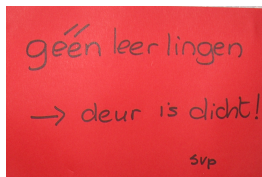 géén leerlingen
→ deur is dicht!
svp